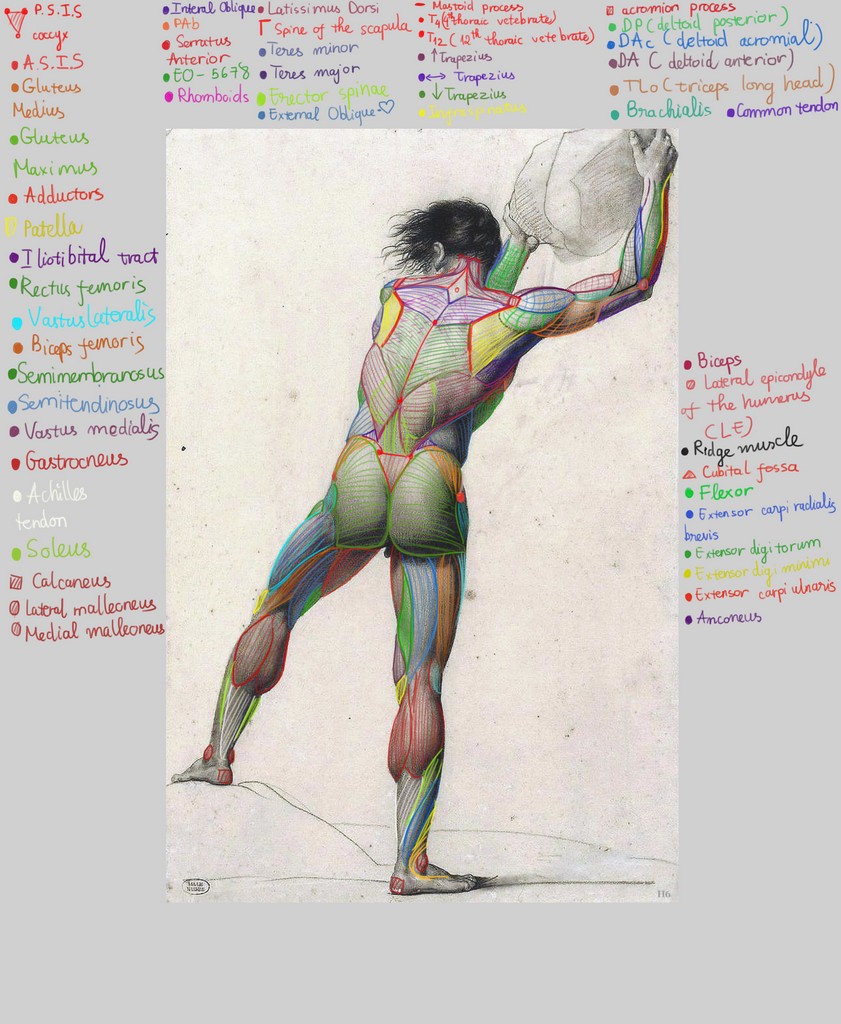 P.S.I.S
coccyx
A.S.I.S
Gluteus
Medius
Gluteus
Maximus
Adductors
Patella
Iliotibital tract
Rectus femoris
Vastus lateralis
Biceps femoris
Semimembranosus
Semitendinosus
Vastus medialis
Gastrocneus
Achilles
tendon
Soleus
Calcaneus
Lateral malleoneus
Medial malleoneus
Interal Oblique
PAb
Serratus
Anterior
EO - 5678
Rhomboids
Latissimus Dorsi
Spine of the scapula
Teres minor
Teres major
Erector spinae
External Oblique
Mastoid process
T12 (12th thoraic vetebrate)
↑Trapezius
↔ Trapezius
↓Trapezius
acromion process
DP (deltoid posterior)
DAc (deltoid acromial)
DA (deltoid anterior)
TLo (triceps long head)
Brachialis
Common tendon
Biceps
Lateral epicondyle
of the humerus
(CLE)
Ridge muscle
Cubital fossa
Flexor
Extensor carpi radialis
brevis
Extensor digitorum
Extensor digi minimi
Extensor carpi ulnaris
Anconeus
H6